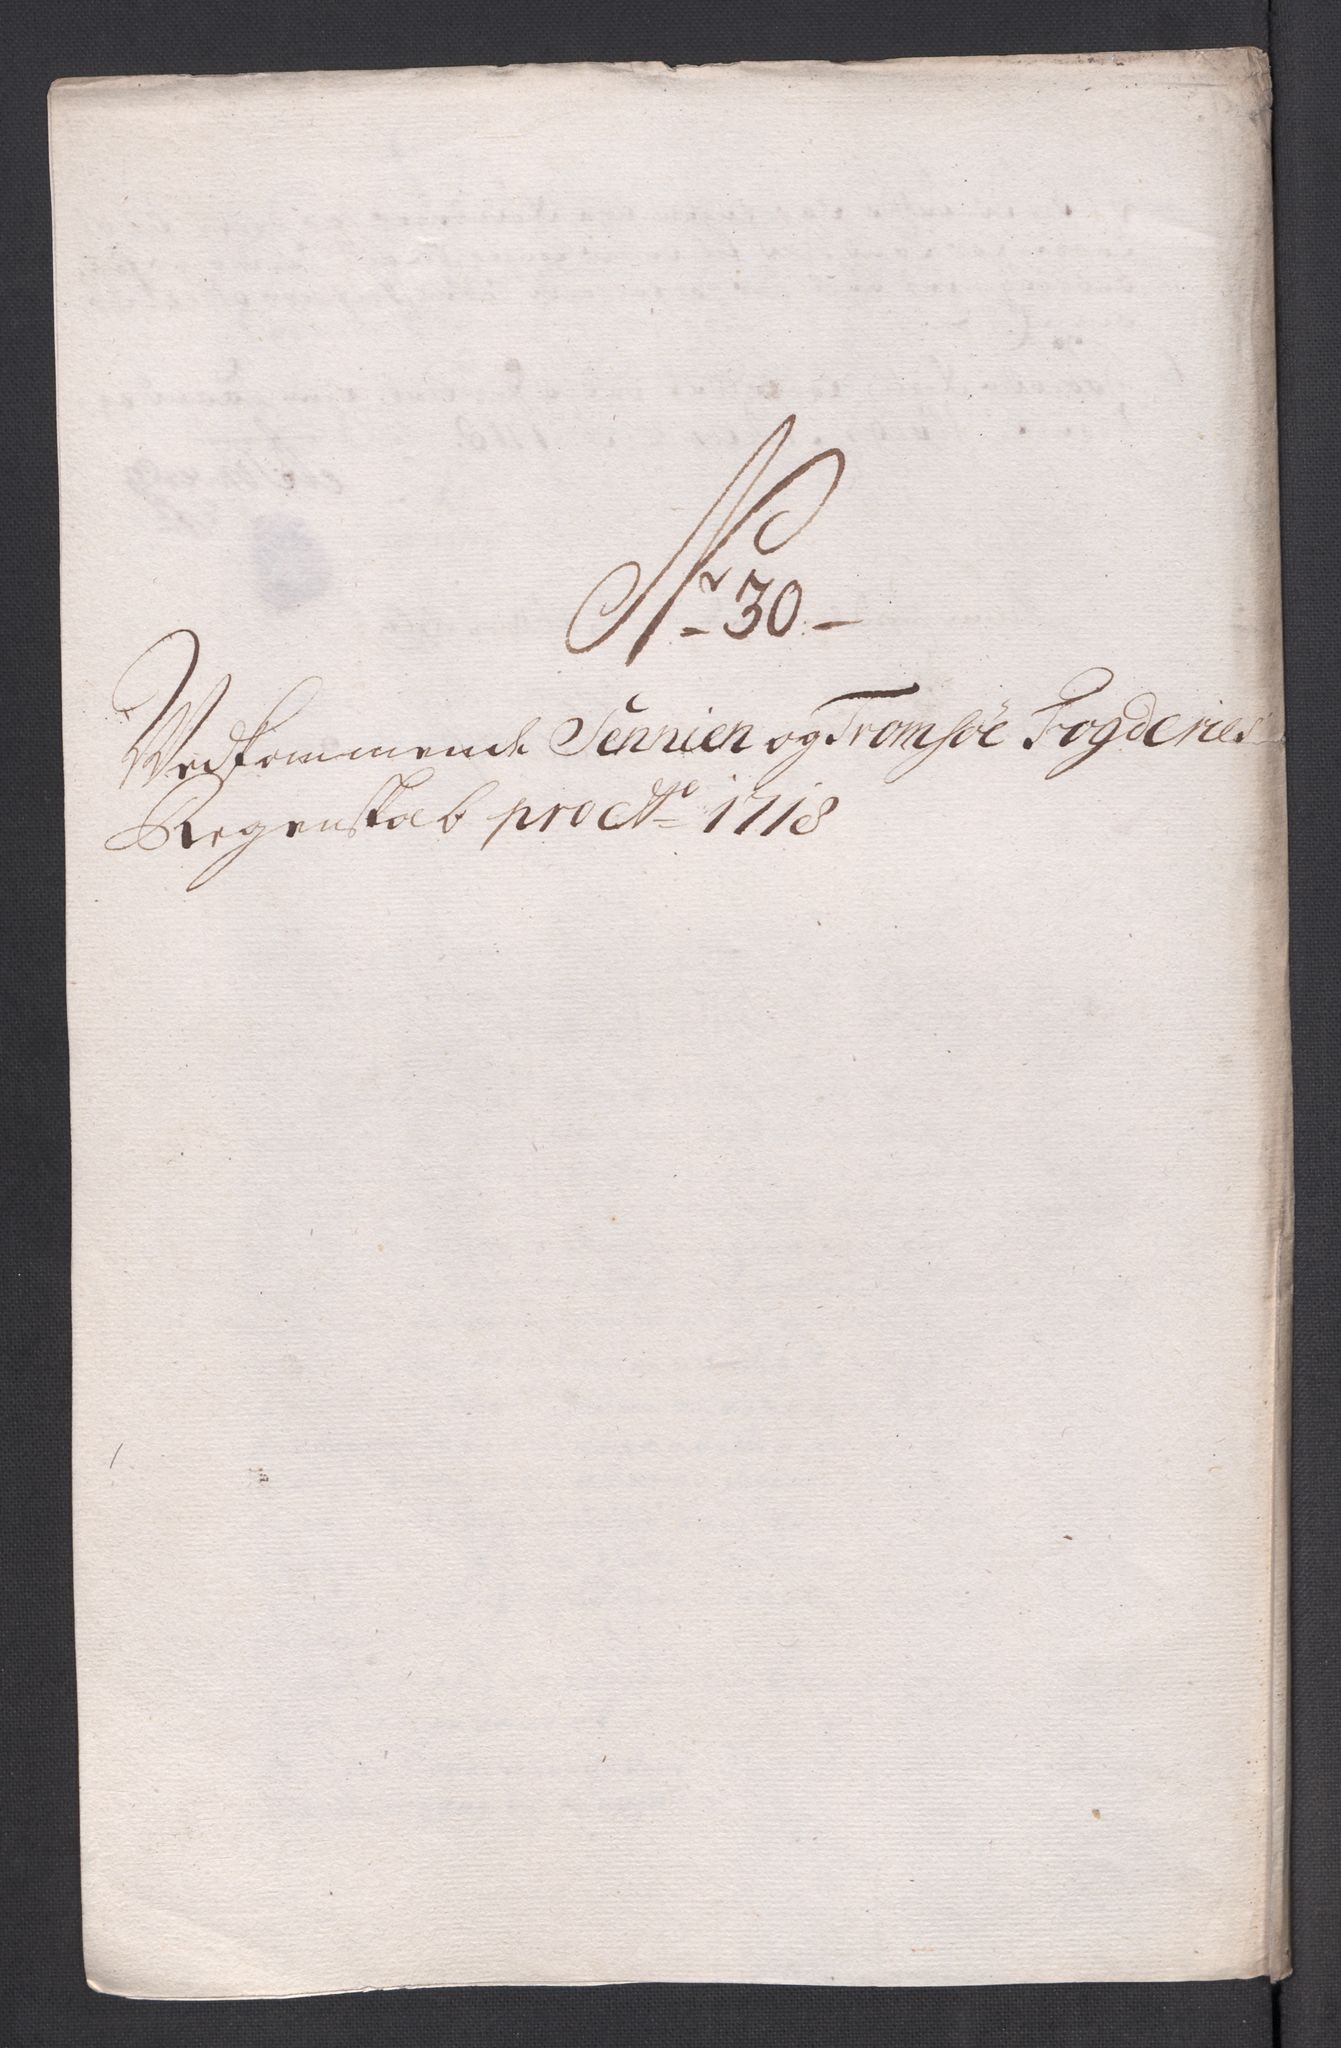 Nr 30
Vedkommende Sennien og Tromsøe Fogderies
Regenskab pro Ao 1718